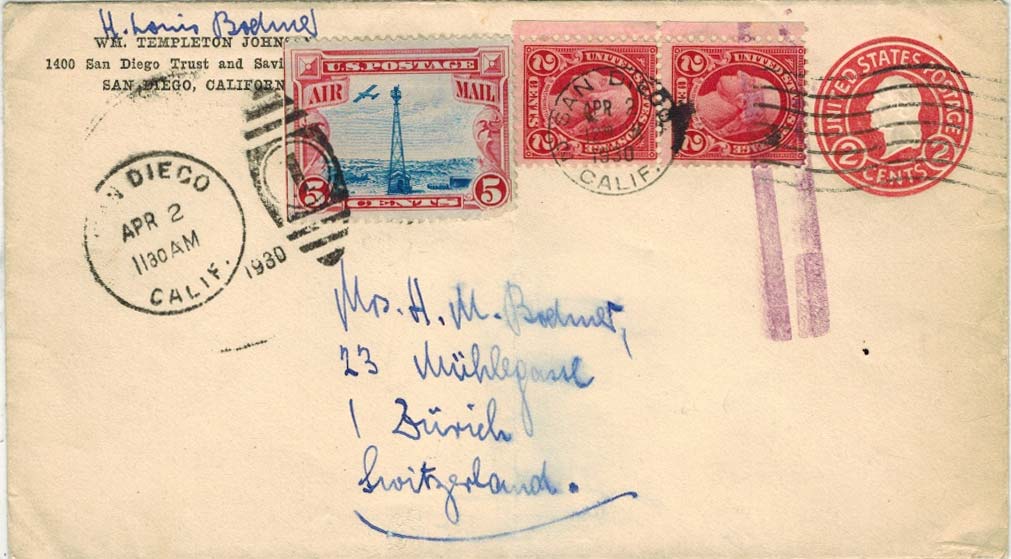 H. Louis Bodmer
WM. TEMPLETON JOHNS
1400 San Diego Trust and Savi
SAN DIEGO, CALIFORN
U.S. POSTAGE
AIR MAIL
5 CENTS 5
2 CENTS 2
2 2
SAN DIEGO
APR 2
1930
CALIF.
UNITED STATES POSTAGE
2 CENTS 2
N DIEGO
APR 2
1130 AM
CALIF.
1930
Mrs. H. M. Bodmer,
23 Mühlegasse
1 Zürich
Switzerland.